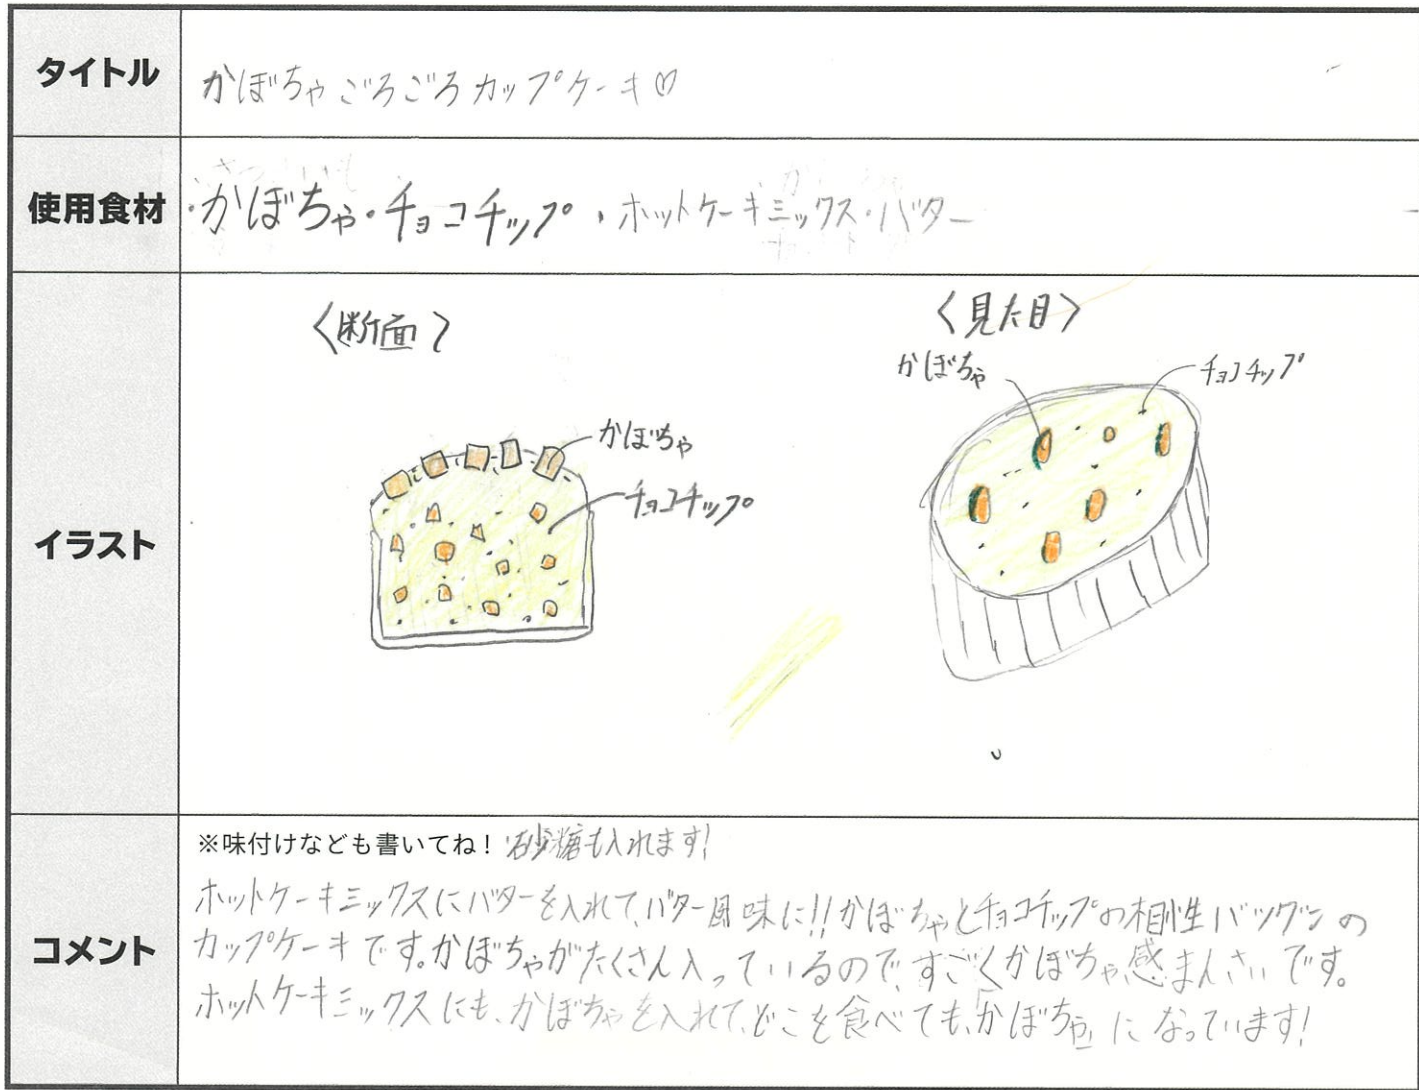 タイトル
かぼちゃごろごろカップケーキ♡
使用食材
・かぼちゃ・チョコチップ・ホットケーキミックス・バター
イラスト
〈断面〉
かぼちゃ
チョコチップ
〈見た目〉
かぼちゃ
チョコチップ
コメント
※味付けなども書いてね！砂糖も入れます!
ホットケーキミックスにバターを入れて、バター風味に!!かぼちゃとチョコチップの相性バツグンの
カップケーキです。かぼちゃがたくさん入っているので、すごくかぼちゃ感まんさいです。
ホットケーキミックスにも、かぼちゃを入れて、どこを食べても、「かぼちゃ」になっています!